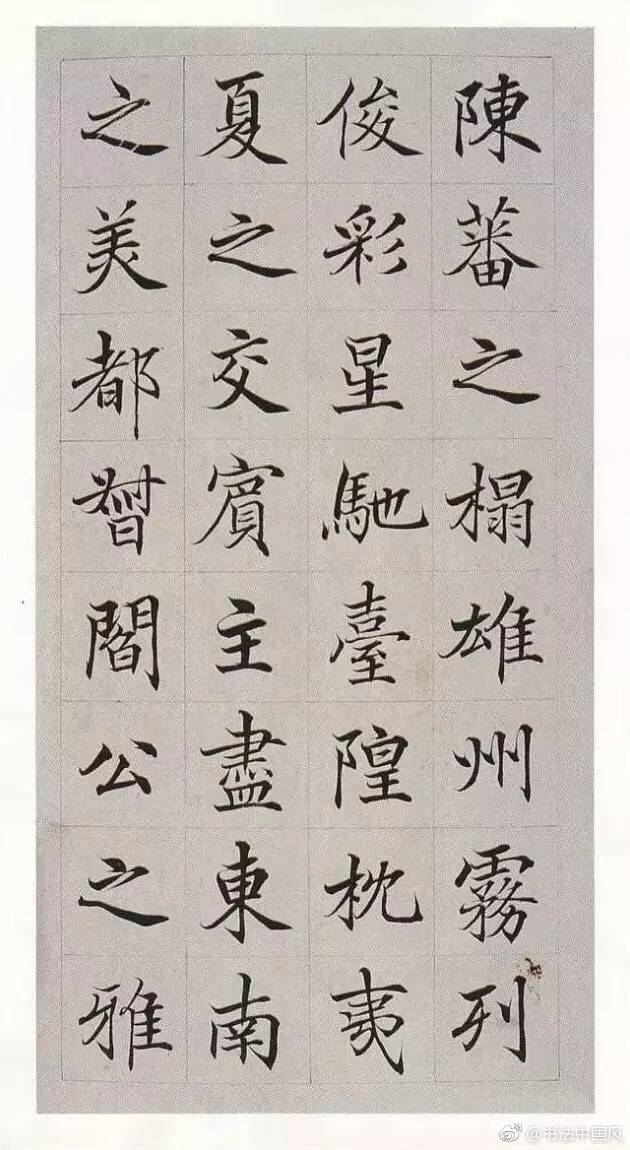 陳蕃之榻雄州霧列
俊彩星馳臺隍枕夷
夏之交賓主盡東南
之美都督閻公之雅
@书法中国风